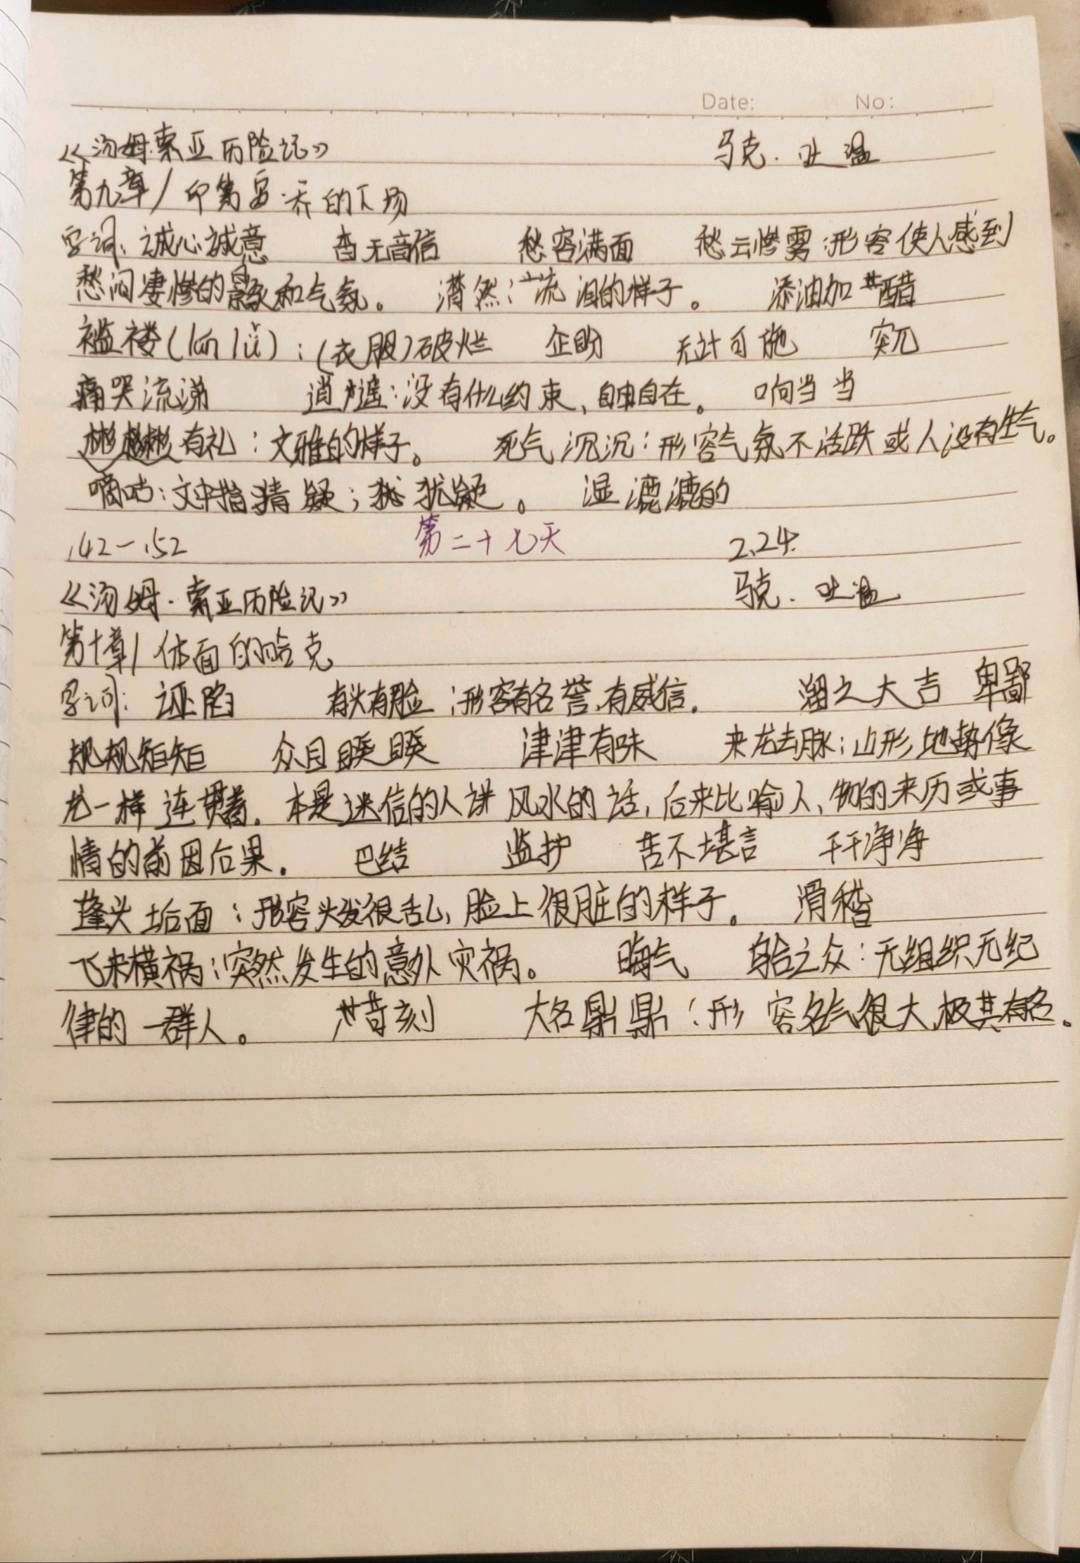 Date: No:
《汤姆·索亚历险记》 马克·吐温
第九章/印第安·乔的下场
字词: 诚心诚意 杳无音信 愁容满面 愁云惨雾:形容使人感到
愁闷凄惨的景象和气氛。 潸然:流泪的样子。 添油加醋
褴褛(lán lǚ):(衣服)破烂 企盼 无计可施 突兀
痛哭流涕 逍遥:没有什么约束、自由自在。 响当当
彬彬有礼:文雅的样子。 死气沉沉:形容气氛不活跃或人没有生气。
嘀咕:文中指猜疑;犹疑。 湿漉漉的
142-152 第二十七天 2.24.
《汤姆·索亚历险记》 马克·吐温
第十章/体面的哈克
字词: 诬陷 有头有脸:形容有名誉,有威信。 溜之大吉 卑鄙
规规矩矩 众目睽睽 津津有味 来龙去脉:山形地势像
龙一样连贯着。本是迷信的人讲风水的话,后来比喻人、物的来历或事
情的前因后果。 巴结 监护 苦不堪言 干干净净
蓬头垢面:形容头发很乱,脸上很脏的样子。 滑稽
飞来横祸:突然发生的意外灾祸。 晦气 乌合之众:无组织无纪
律的一群人。 苛刻 大名鼎鼎:形容名气很大,极其有名。